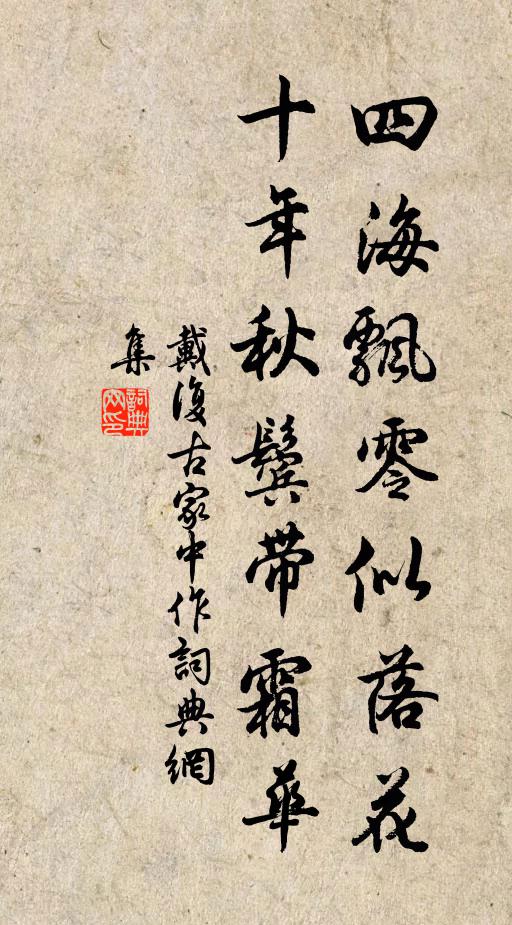 四海飄零似落花
十年秋鬢带霜華
戴復古家中作詞典網
集
詞典
网印